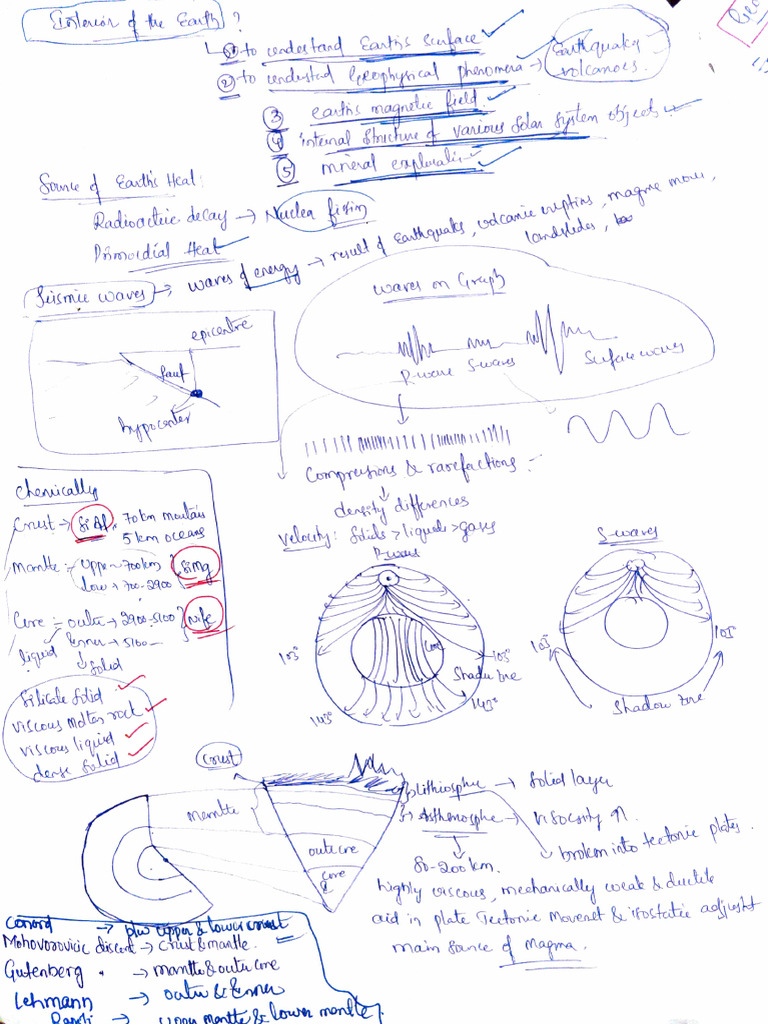 Interior of the Earth ?
① to understand Earth's surface
② to understand Geophysical phenomena → Earthquakes
volcanoes.
③ earth's magnetic field.
④ internal structure of various solar system objects
⑤ mineral exploration
Source of Earth's Heat:
Radioactive decay → Nuclea fission
Primordial Heat
Seismic waves → waves of energy → result of Earthquakes, volcanic eruptions, magma move,
landslides,
waves on Graph
P-wave S-waves
Surface waves
epicentre
faut
hypocenter
Compressions & rarefactions
density differences
Velocity: Solids > liquids > gases
Chemically
Crust → SiAl, 70km moutais
5 km oceans
Mantle :- Upper - 700km SiMg
low → 700-2900
Core :- outer → 2900-5100 nife
liquid Enner → 5100 -
solid
Silicate solid
viscous molten rock
viscous liquid
dense solid
P-waves
103° 103°
Core
Shadow zone
143° 143°
S-waves
103° 103°
Shadow zone
Crust
mantle
outer core
core
Lithiosphere → Solid layer
broken into tectonic plates.
Asthenosphere → viscosity ↑.
80-200km.
highly viscous, mechanically weak & ductile
aid in plate Tectonic Movenet & isostatic adjust
main source of Magma.
conord → b/w upper & lower crust
Mohovorovicic discont → Crust & mantle.
Gutenberg → mantle & outer core
Lehmann → outer & Enner
→ upper mantle & lower mantle